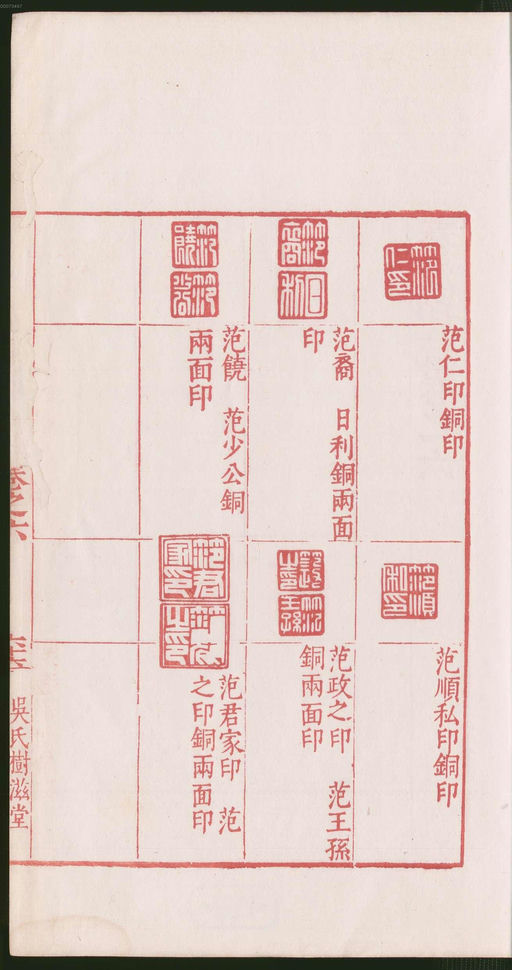 00073487
范仁印銅印
范順私印銅印
范裔 日利銅兩面
印
范政之印 范王孫
銅兩面印
范饒 范少公銅
兩面印
范君家印 范
之印銅兩面印
卷之六
吳氏樹滋堂